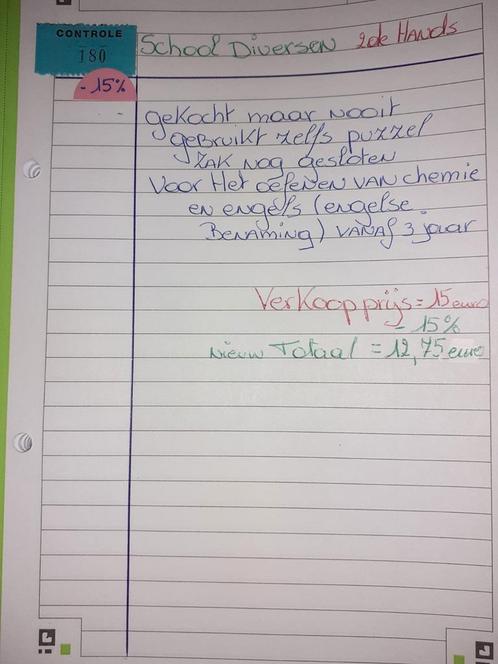 CONTROLE
180
- 15%
School Diversen 2de Hands
- gekocht maar nooit
gebruikt zelfs puzzel
zak nog gesloten
Voor Het oefenen van chemie
en engels (engelse
Benaming) vanaf 3 jaar
Verkoopprijs = 15 euro
- 15%
Nieuw Totaal = 12,75 euro